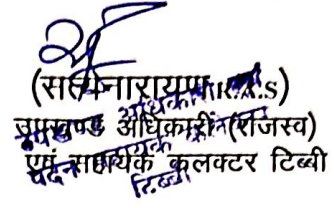 (सत्यनारायण R.A.S)
उपखण्ड अधिकारी (राजस्व)
एवं सहायक कलक्टर टिब्बी